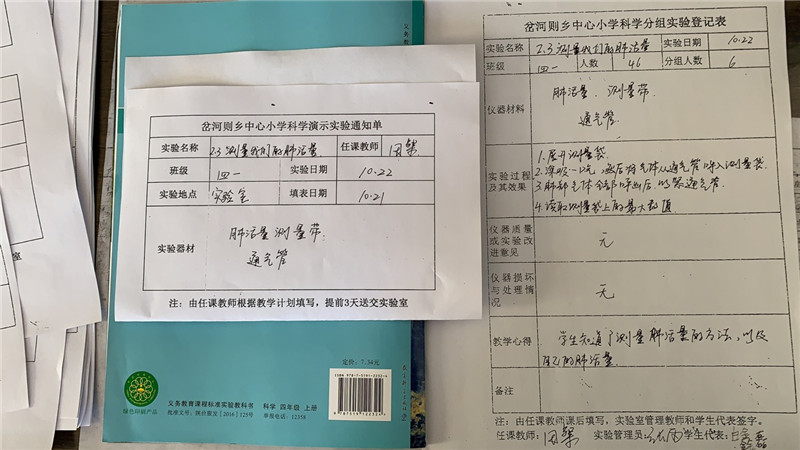 岔河则乡中心小学科学演示实验通知单
实验名称 2.3 测量我们的肺活量 任课教师
班级 四一 实验日期 10.22
实验地点 实验室 填表日期 10.21
实验器材
肺活量测量带
通气管
注：由任课教师根据教学计划填写，提前3天送交实验室
定价：7.34元
ISBN 978-7-5191-2252-6
9 787519 122526
绿色印刷产品
义务教育课程标准实验教科书 科学 四年级 上册
举报电话：12358
岔河则乡中心小学科学分组实验登记表
实验名称 2.3 测量我们的肺活量 实验日期 10.22
班级 四一 人数 46 分组人数 6
仪器材料
肺活量、测量带、
通气管
实验过程及其效果
1.展开测量袋.
2.深吸一口气,然后将气体从通气管呼入测量袋.
3.肺部气体全部呼出后,
通气管.
4.读取测量袋上的最大数值
仪器质量
或实验改
进意见
无
仪器损坏
与处理情
况
无
教学心得 学生知道了测量肺活量的方法,以及
自己的肺活量.
备注
注：由任课教师课后填写，实验室管理教师和学生代表签字。
任课教师： 实验管理员： 学生代表：